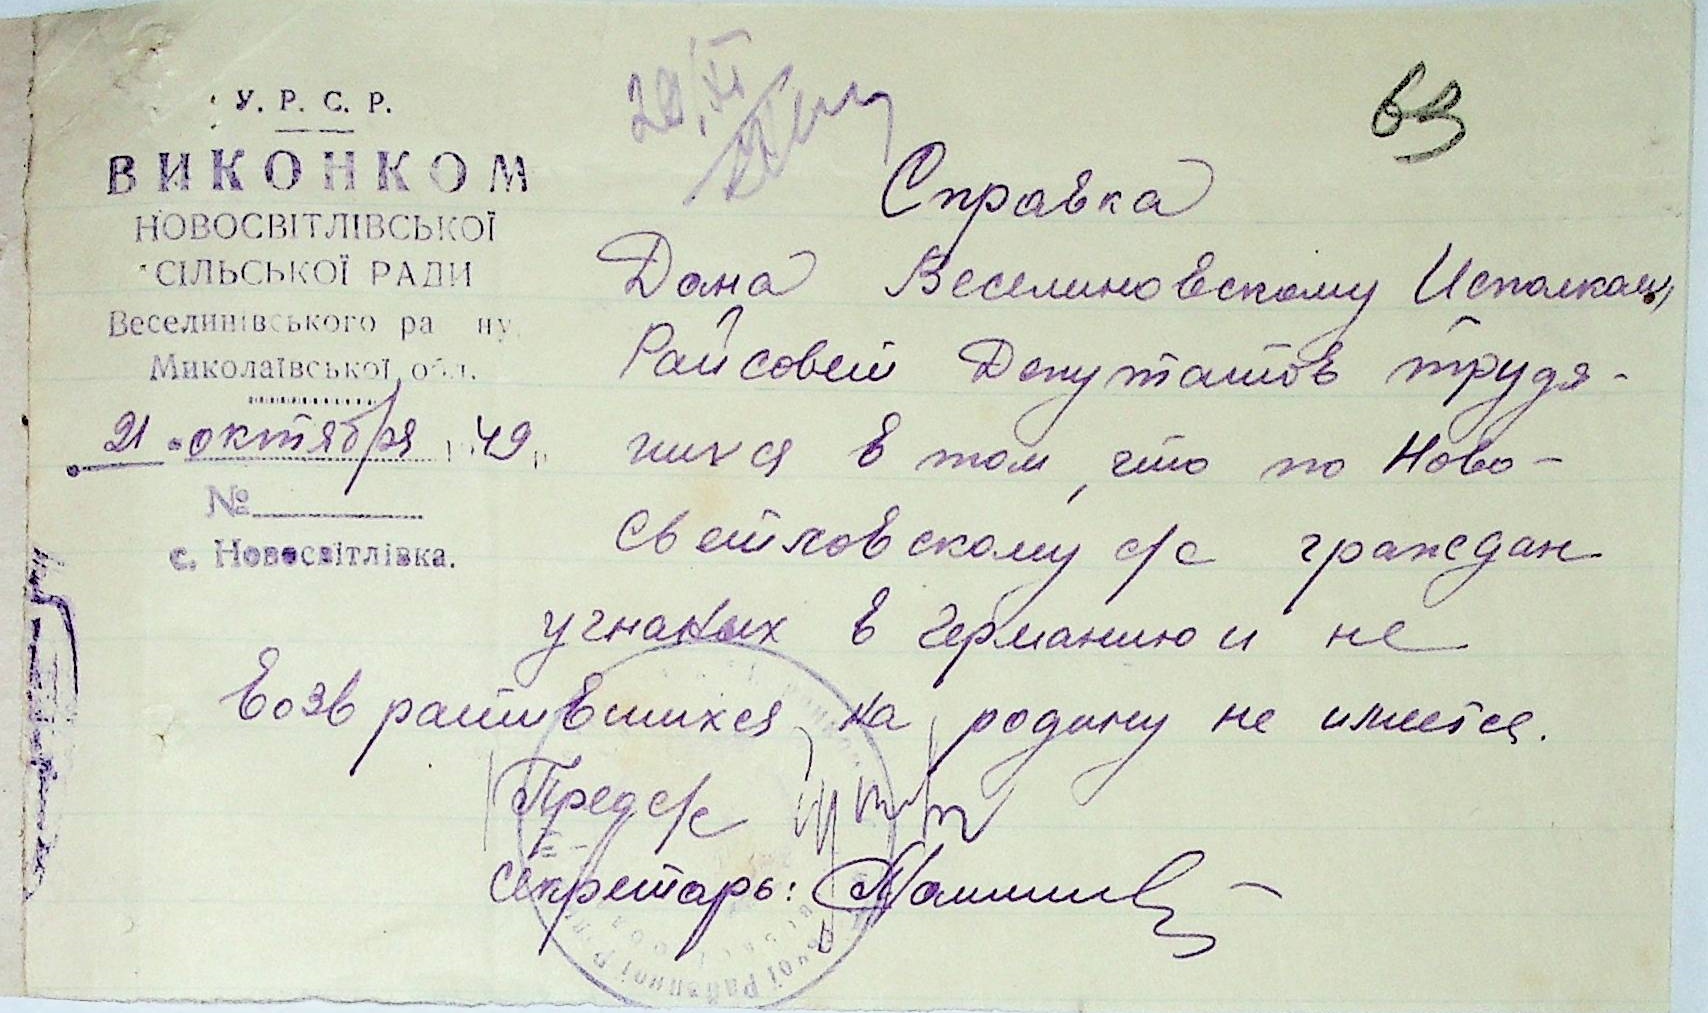 У. Р. С. Р.
ВИКОНКОМ
НОВОСВІТЛІВСЬКОЇ
СІЛЬСЬКОЇ РАДИ
Веселинівського ра ну
Миколаївської обл.
21 октября 49
№
с. Новосвітлівка.
20/XI
63
Справка
Дана Веселиновскому Исполкому
Райсовет Депутатов трудя-
щихся в том, что по Ново-
светловскому с/с граждан
угнаных в Германию и не
возвратившихся на родину не имеется.
Пред с/с
Секретарь: